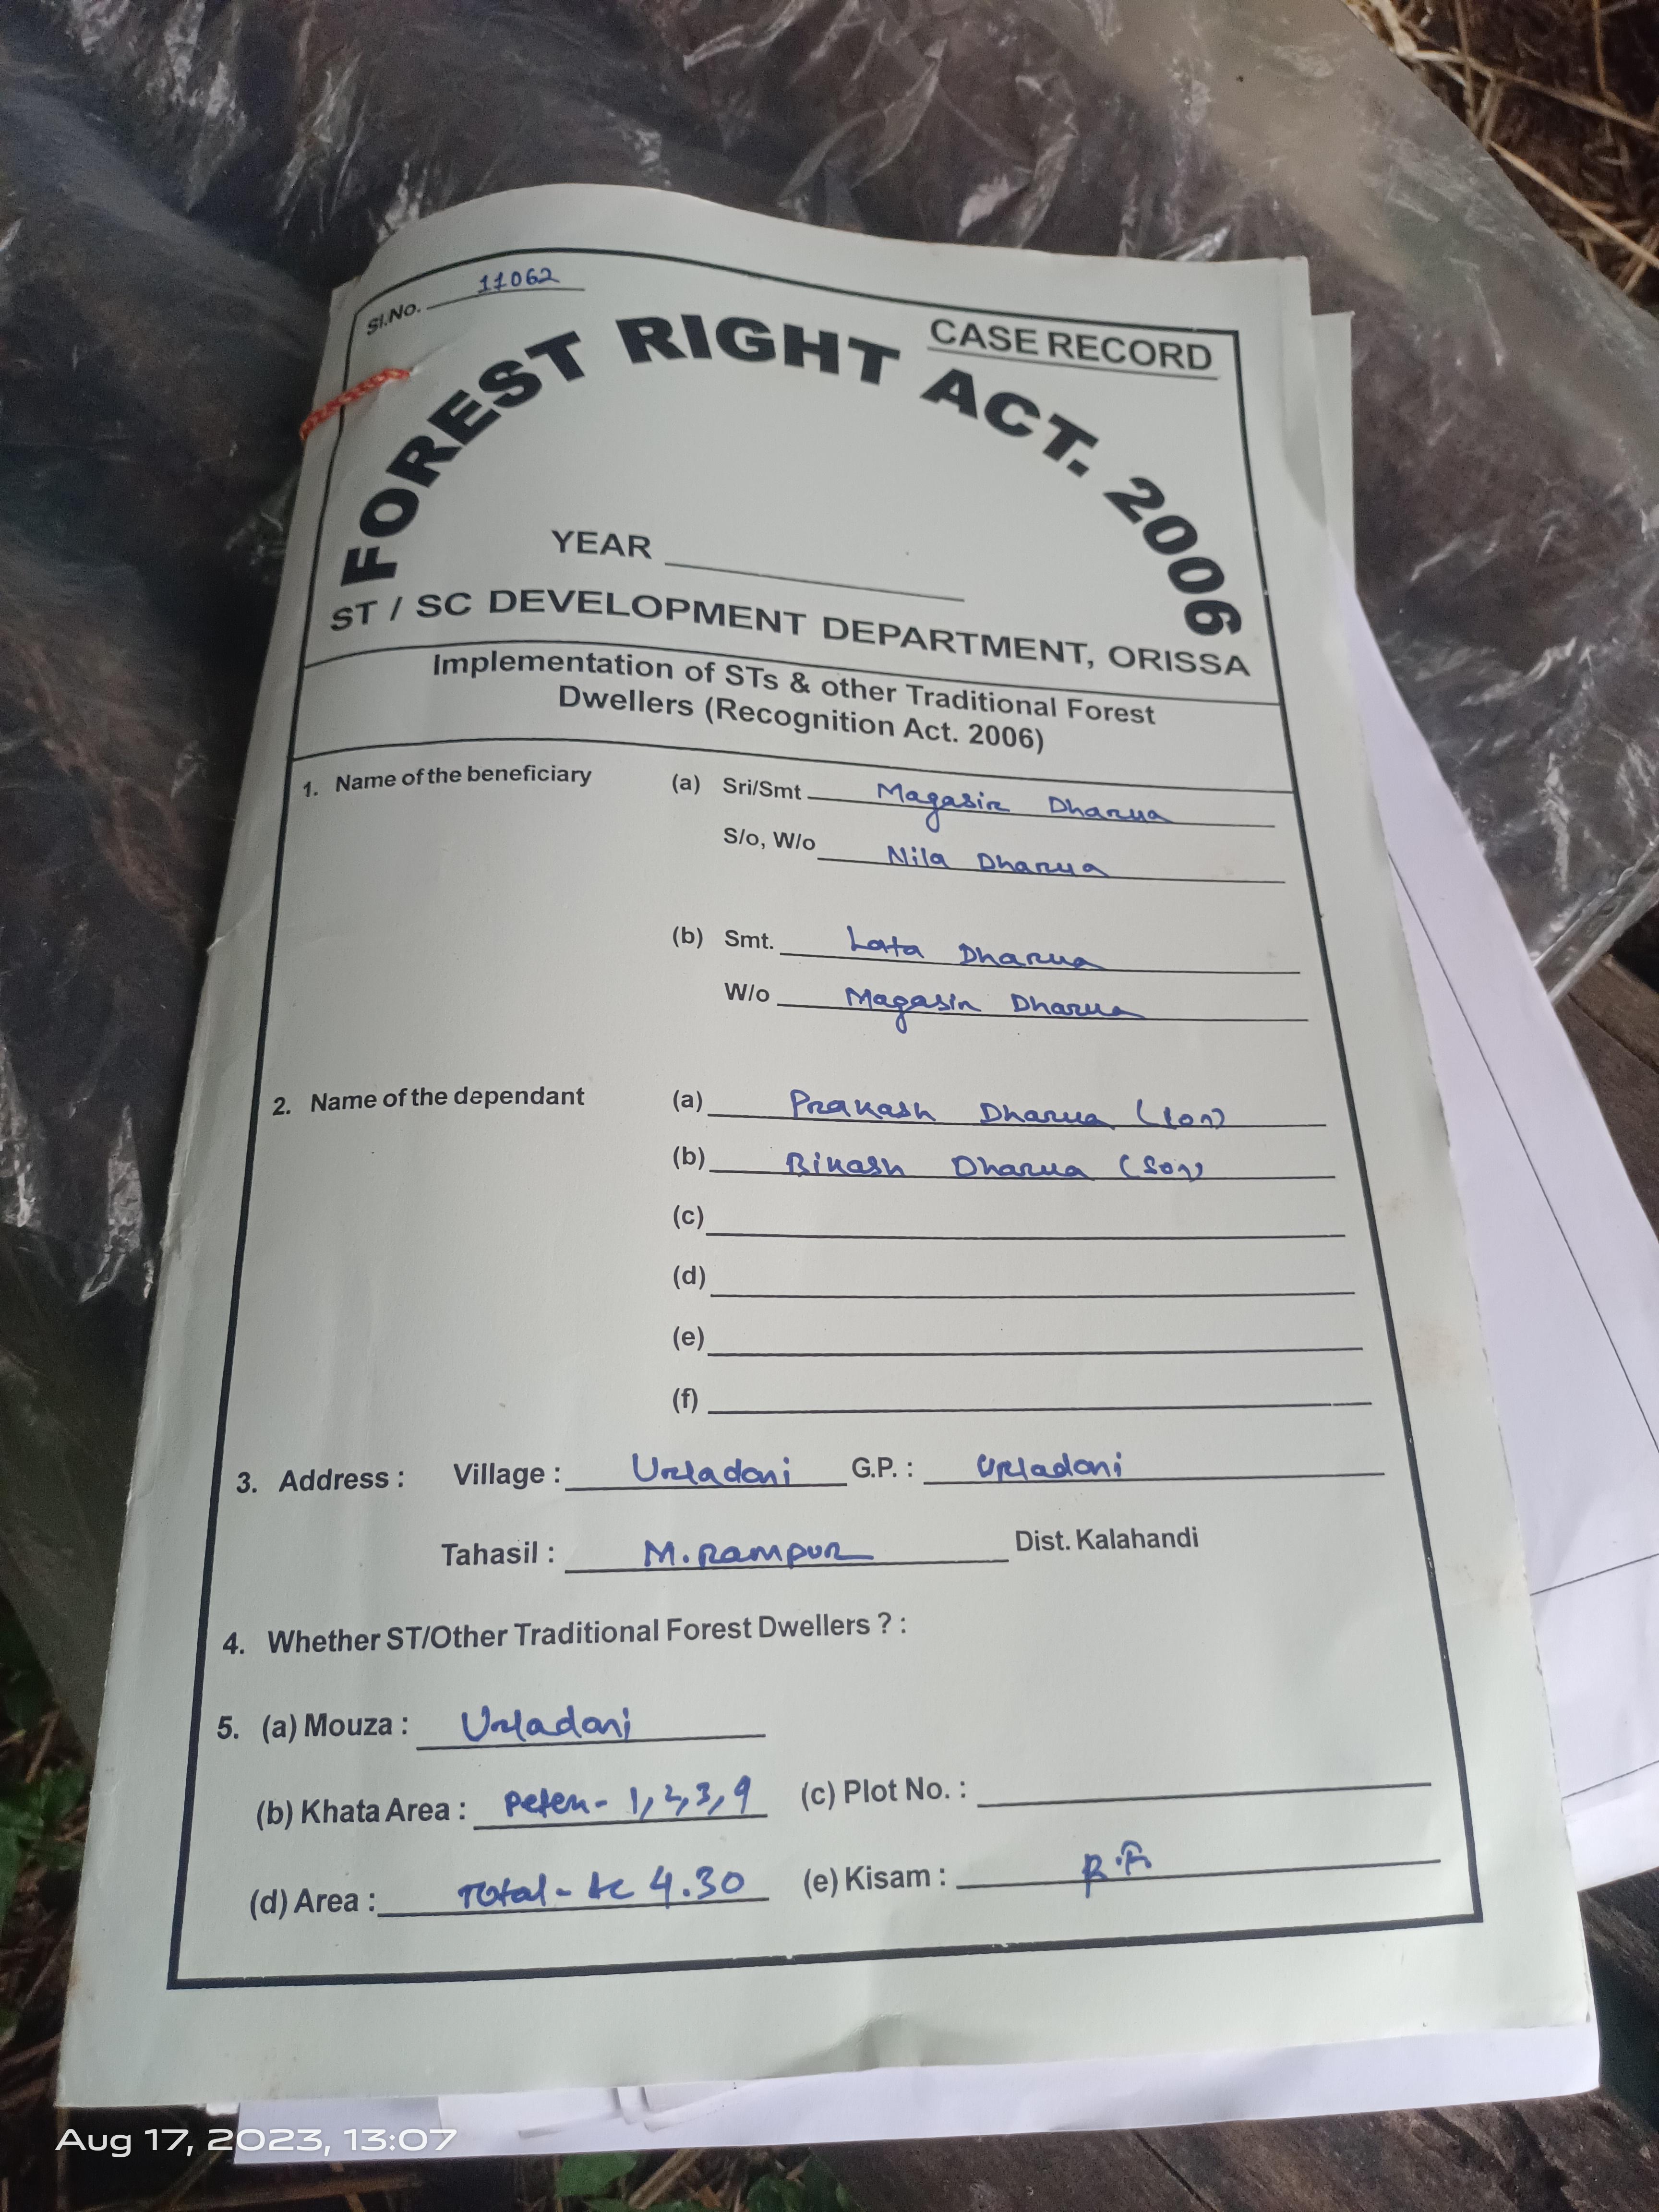 Sl.No. 11062
CASE RECORD
FOREST RIGHT ACT. 2006
YEAR
ST / SC DEVELOPMENT DEPARTMENT, ORISSA
Implementation of STs & other Traditional Forest
Dwellers (Recognition Act. 2006)
1. Name of the beneficiary (a) Sri/Smt Magasir Dharua
S/o, W/o Nila Dharua
(b) Smt. Lata Dharua
W/o Magasir Dharua
2. Name of the dependant (a) Prakash Dharua (son)
(b) Bikash Dharua (son)
(c)
(d)
(e)
(f)
3. Address : Village : Urladani G.P. : Urladani
Tahasil : M.Rampur Dist. Kalahandi
4. Whether ST/Other Traditional Forest Dwellers ? :
5. (a) Mouza : Urladani
(b) Khata Area : 1, 2, 3, 4 (c) Plot No. :
(d) Area : Total - Ac 4.30 (e) Kisam :
Aug 17, 2023, 13:07